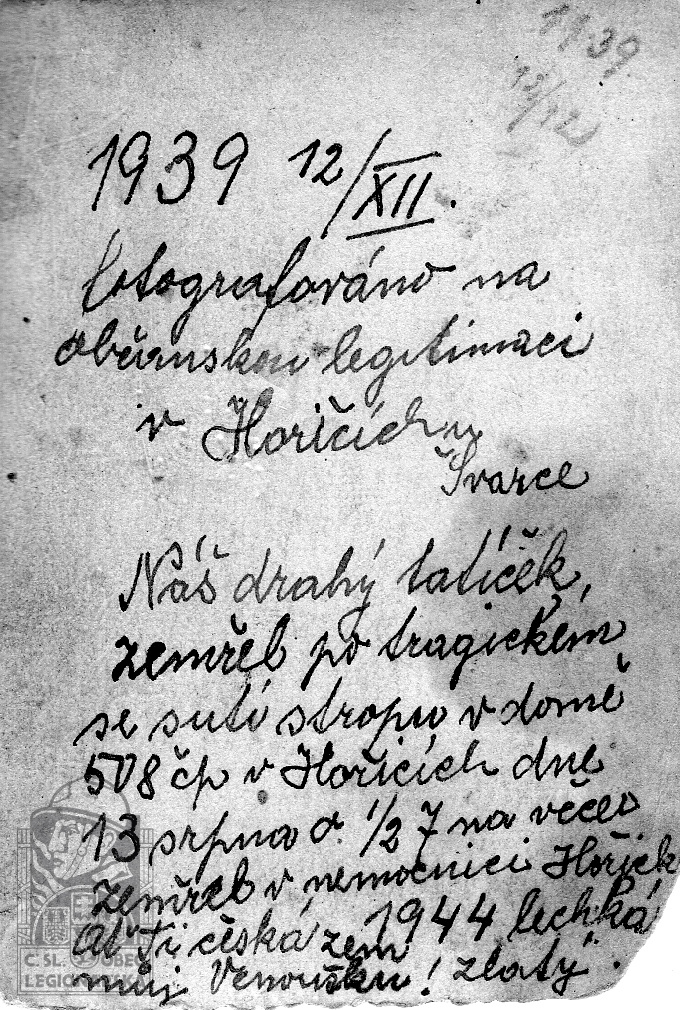 1939
12/12
1939 12/XII.
fotografováno na
občanskou legitimaci
v Hořicích u
Švarce
Náš drahý tatíček,
zemřel po tragickém
se sutí stropu v domě
508 čp v Hořicích dne
13 srpna o 1/2 7 na večer
zemřel v nemocnici Hořick
1944 lechká
ať Ti česká zem
můj Venoušku! zlatý.
ČSL. OBEC
LEGIONÁŘSKÁ